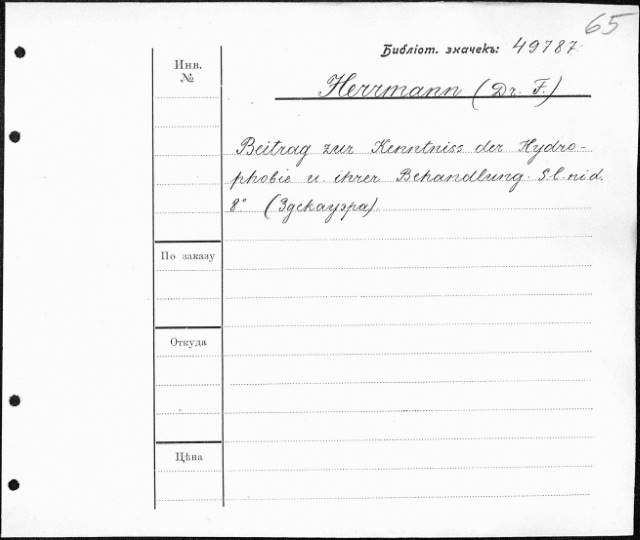 65
Библіот. значекъ: 49787.
Инв.
№
Herrmann (Dr. F.)
Beitrag zur Kenntniss der Hydro-
phobie u. ihrer Behandlung. S. l. n. i d.
8° (Эдскауэра).
По заказу
Откуда
Цѣна